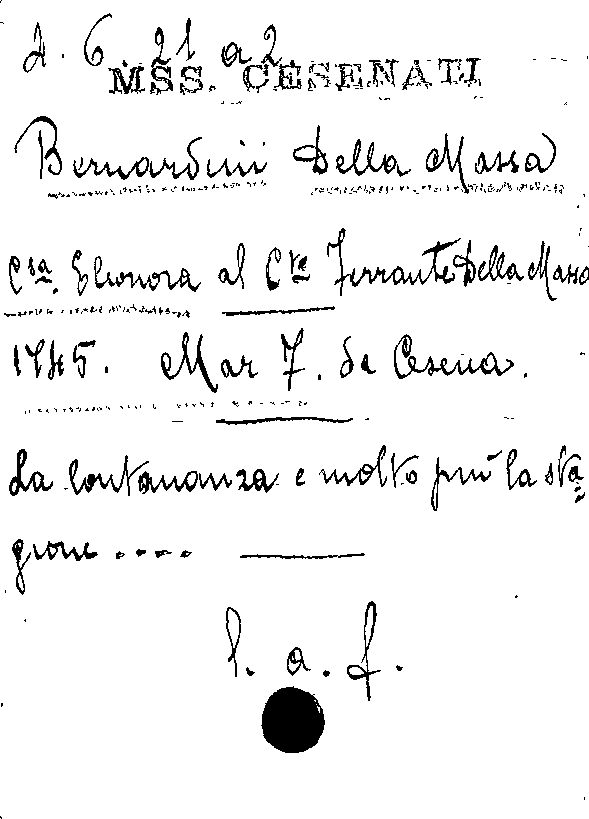 A. 6 21 a 2
MSS. CESENATI
Bernardini Della Massa
Csa. Eleonora al Cte Ferrante Della Massa
1745. Mar 7. da Cesena.
La lontananza e molto più la sta=
gione ....
l. a. f.